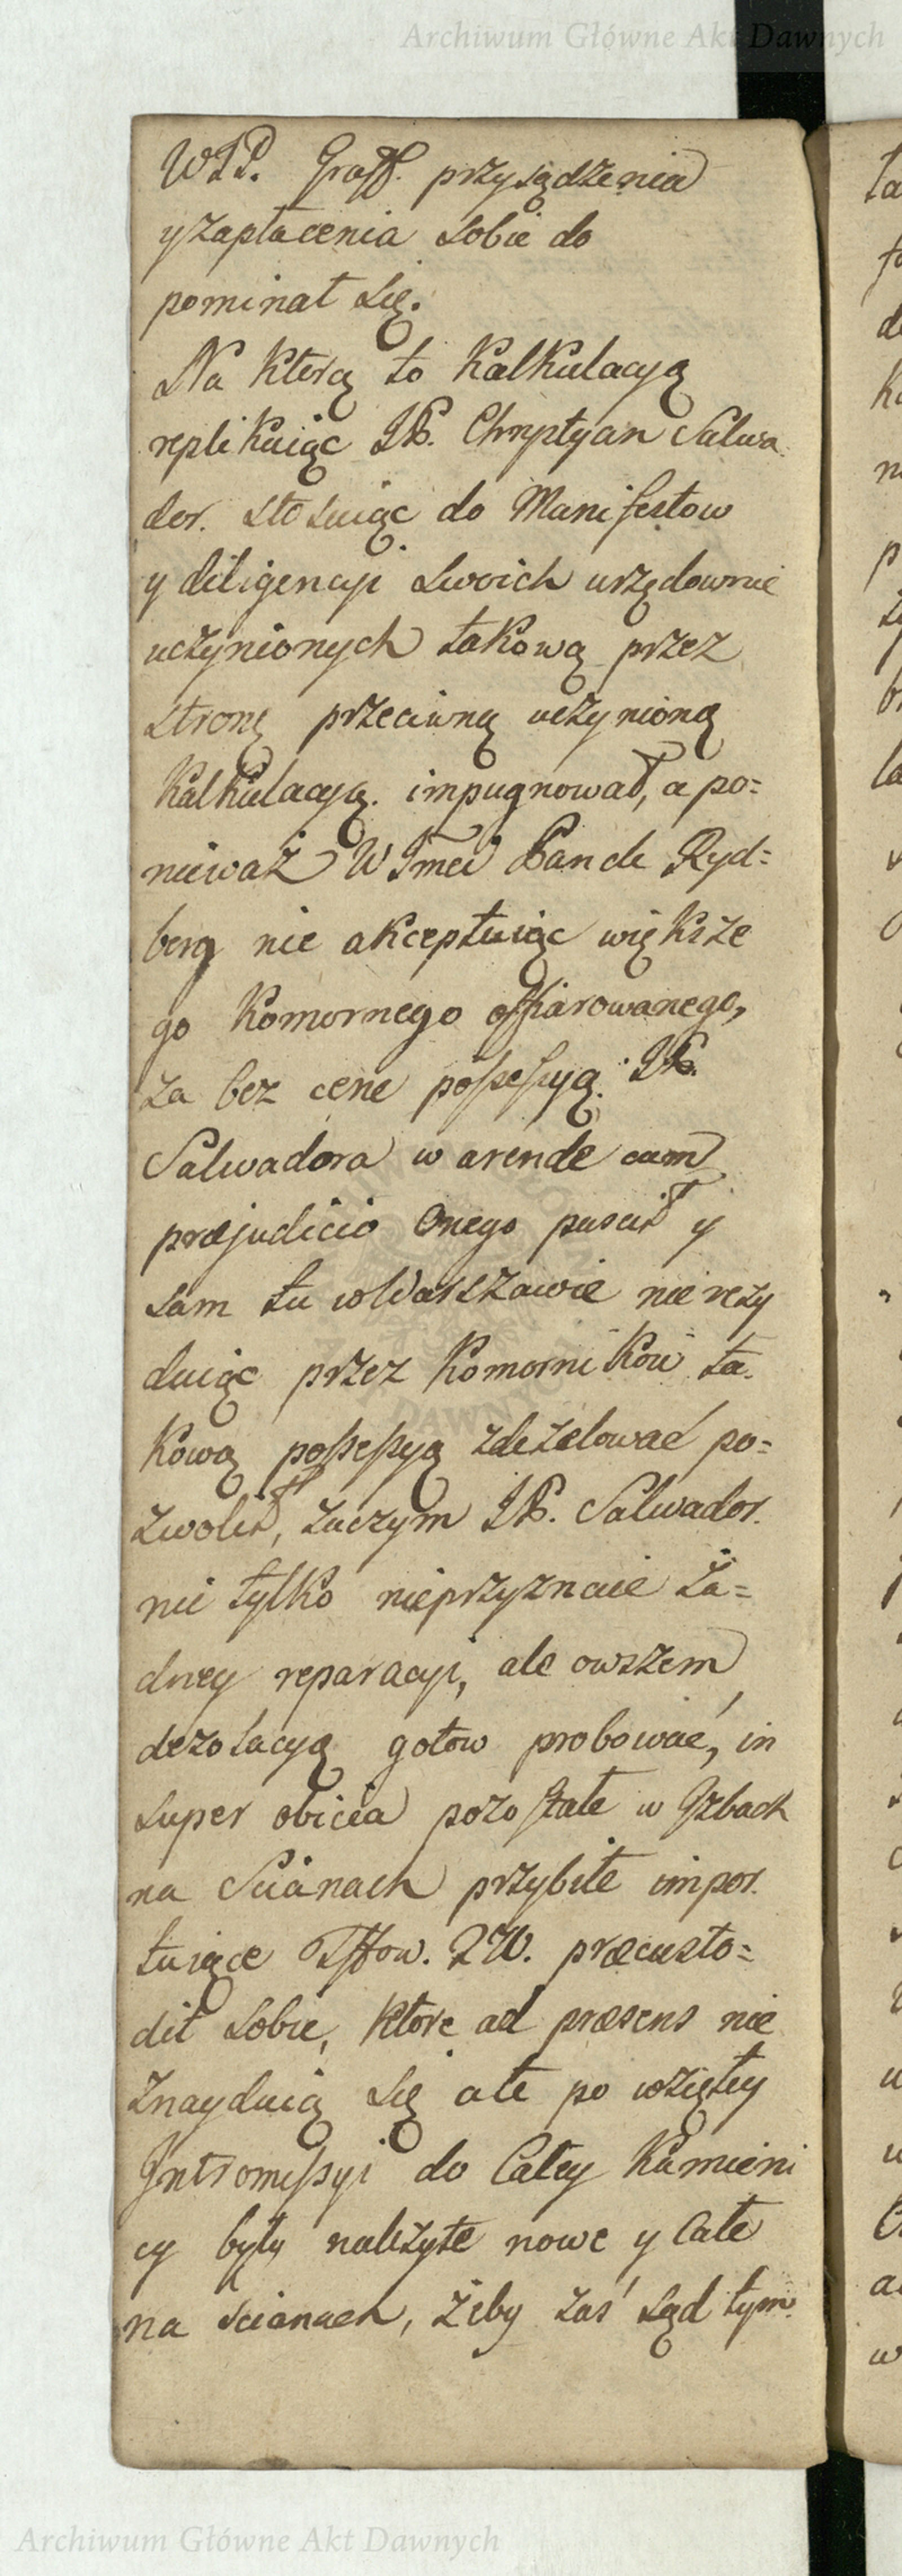 Archiwum Główne Akt Dawnych
WJP. Graff. przysądzenia
y zapłacenia sobie do
pominał się.
Na ktorą to Kalkulacyą
replikuiąc JP. Chrystyan Salwa
dor. stosuiąc do Manifestow
y diligencyi swoich urzędownie
uczynionych takową przez
stronę przeciwną uczynioną
Kalkulacyą. impugnował, a po=
nieważ W Jmci Pan de Ryd=
berg nie akceptuiąc większe
go Komornego offiarowanego,
za bez cene possessyą. JP.
Salwadora w arende cum
præjudicio Onego puscił y
sam tu w Warszawie nie rezy
duiąc przez Komornikow ta.
kową possessyą zdezelować po=
zwolił, zaczym JP. Salwador.
nie tylko nieprzyznaie ża=
dney reparacyi, ale owszem
dezolacyą gotow probować, in
super obicia pozostałe w Jzbach
na Scianach przybite impor.
tuiące 270. præcusto=
dit sobie, ktore ad præsens nie
znayduią się ale po wziętey
Jntromissyi do Całey Kamieni
cy były należyte nowe y Całe
na scianach, żeby zaś sąd tym
Archiwum Główne Akt Dawnych